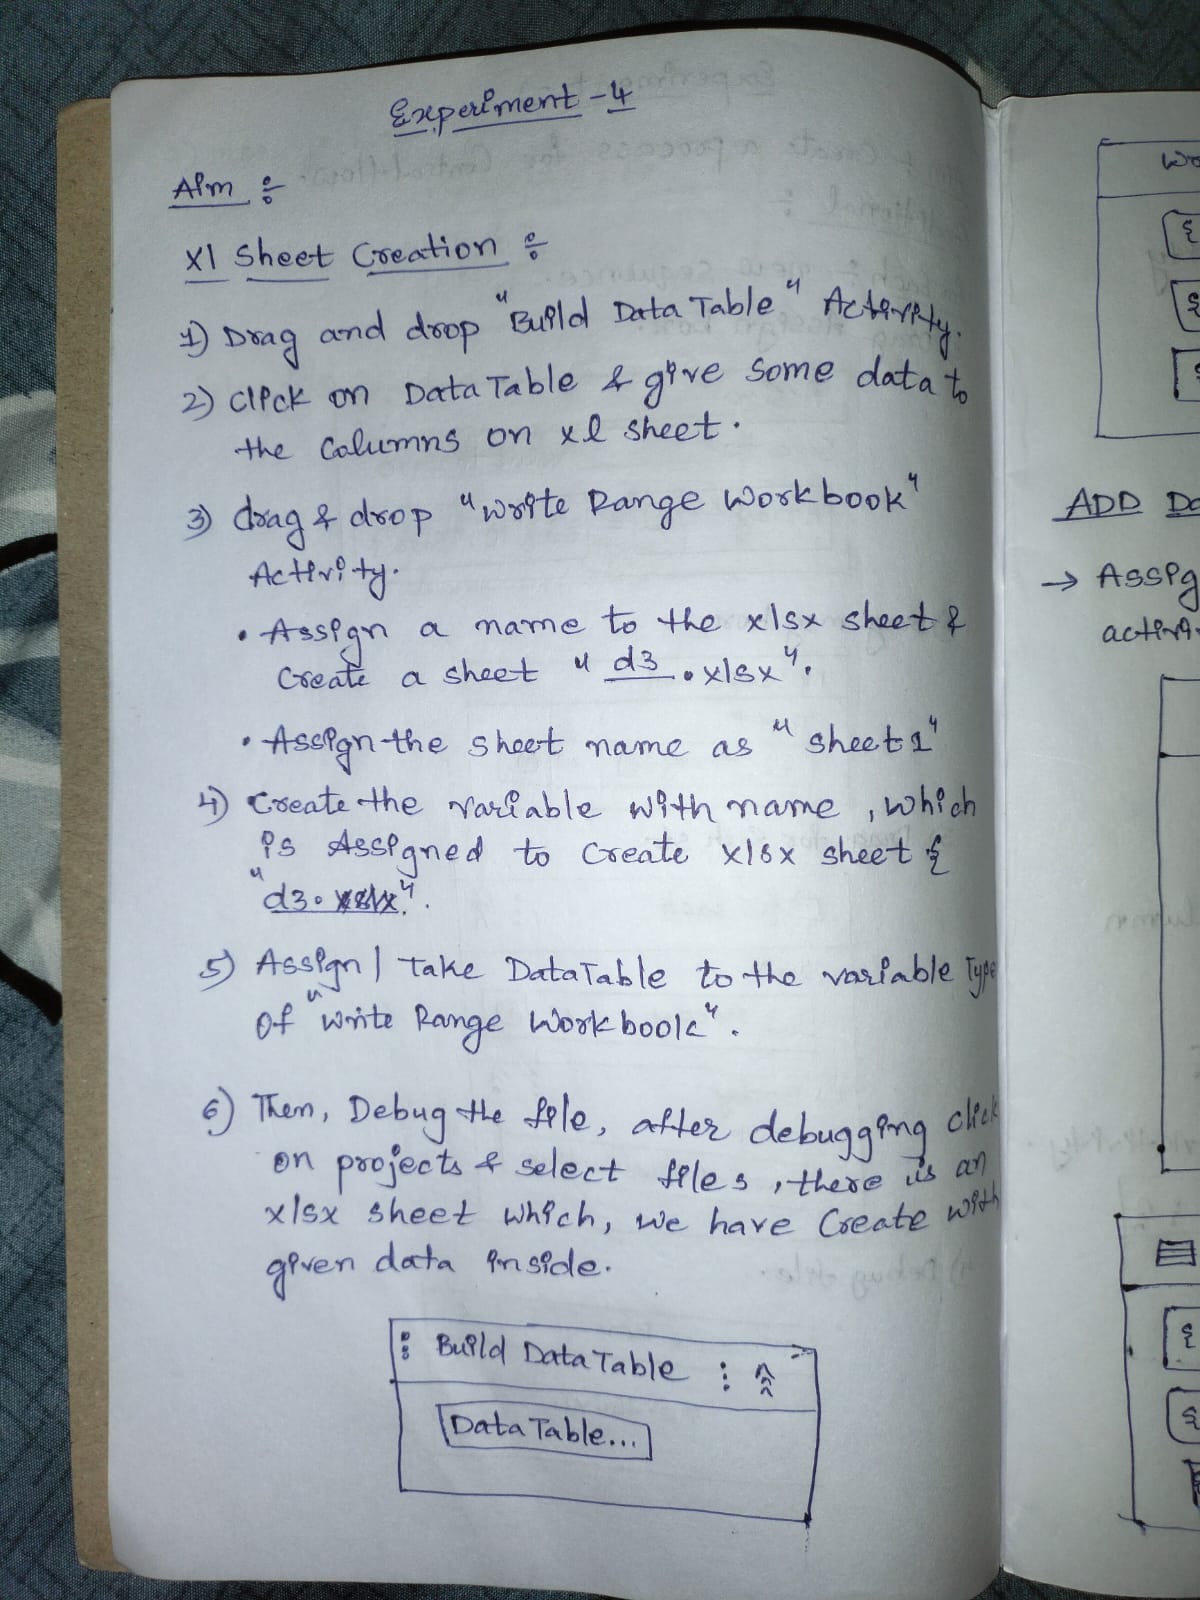 Experiment-4
Aim :-
Xl Sheet Creation :-
1) Drag and drop "Build Data Table" Activity.
2) Click on Data Table & give some data to
the Columns on xl sheet.
3) drag & drop "Write Range Workbook"
Activity.
• Assign a name to the xlsx sheet &
Create a sheet "d3.xlsx".
• Assign the sheet name as "sheet1"
4) Create the variable with name, which
is Assigned to Create xlsx sheet &
"d3.
5) Assign | Take DataTable to the variable Type
of "Write Range Workbook".
6) Then, Debug the file, after debugging click
on projects & select files, there is an
xlsx sheet which, we have Create with
given data inside.
Build DataTable
Data Table...
ADD
→